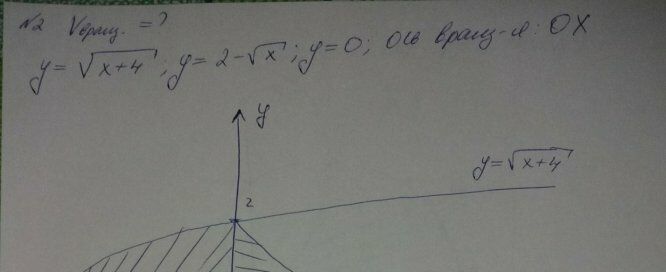 №2 Vвращ. = ?
y = √x+4 ; y = 2 - √x ; y = 0 ; ось вращ-я : OX
y
y = √x+4
2